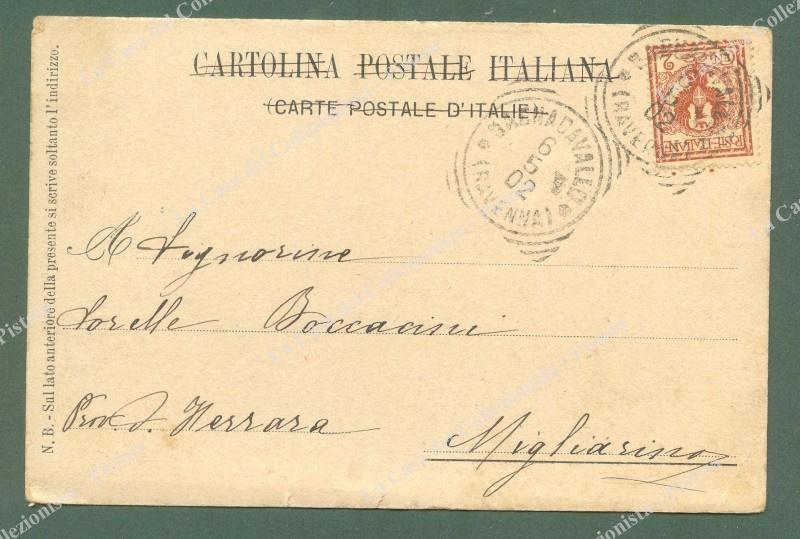 CARTOLINA POSTALE ITALIANA
(CARTE POSTALE D'ITALIE)
BAGNACAVALLO
6 5 02
(RAVENNA)
POSTE ITALIANE
N. B. - Sul lato anteriore della presente si scrive soltanto l'indirizzo.
A Signorine
Sorelle Boccacini
Prov. d. Ferrara
Migliarino
La Casa del Collezionista - Pistoia